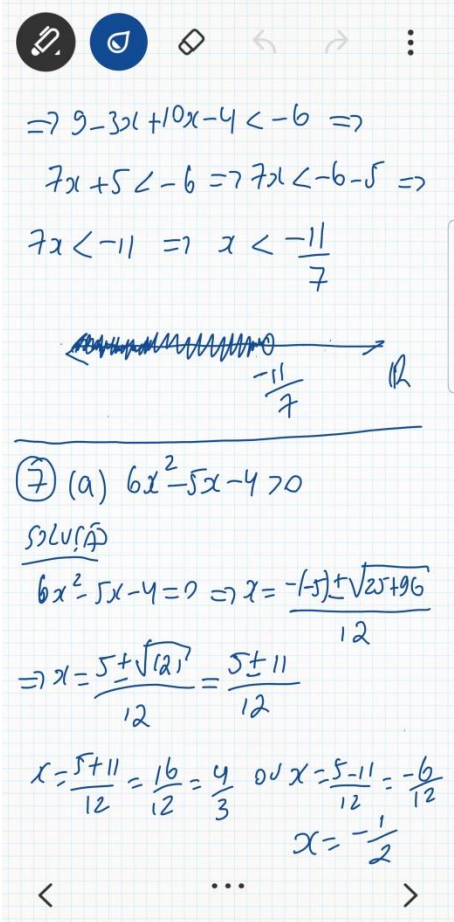 => 9-3x+10x-4<-6 =>
7x+5<-6 => 7x<-6-5 =>
7x<-11 => x < -11/7
-11/7 ℝ
⑦ (a) 6x²-5x-4>0
SOLUÇÃO
6x²-5x-4=0 => x = -(-5)±√25+96/12
=> x = 5±√121/12 = 5±11/12
x = 5+11/12 = 16/12 = 4/3 OU x = 5-11/12 = -6/12
x = -1/2